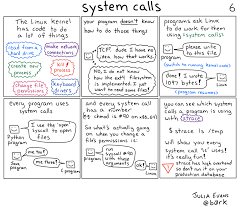 system calls
6
The Linux kernel
has code to do
a lot of things
read from a
hard drive
make network
connections
create new
process
kill
process
change file
permissions
keyboard
drivers
your program doesn't know
how to do those things
TCP? dude I have no
idea how that works.
NO, I do not know
how the ext4 filesystem
is implemented. I just
want to read some files!
programs ask Linux
to do work for them
using system calls
please write
to this file
done! I wrote
1097 bytes!
program
Linux
every program uses
system calls
I use the 'open'
syscall to open
files
Python
program
me too!
me three!
Java
program
C
program
and every system call
has a number
(eg chmod is #90 on x86_64)
So what's actually going
on when you change a
file's permissions is:
run syscall #90
with these
arguments
program
Linux
you can see which system
calls a program is using
with strace
$ strace ls /tmp
will show you every
system call 'ls' uses!
it's really fun!
strace has high overhead
so don't run it on your
production database
JULIA EVANS
@b0rk